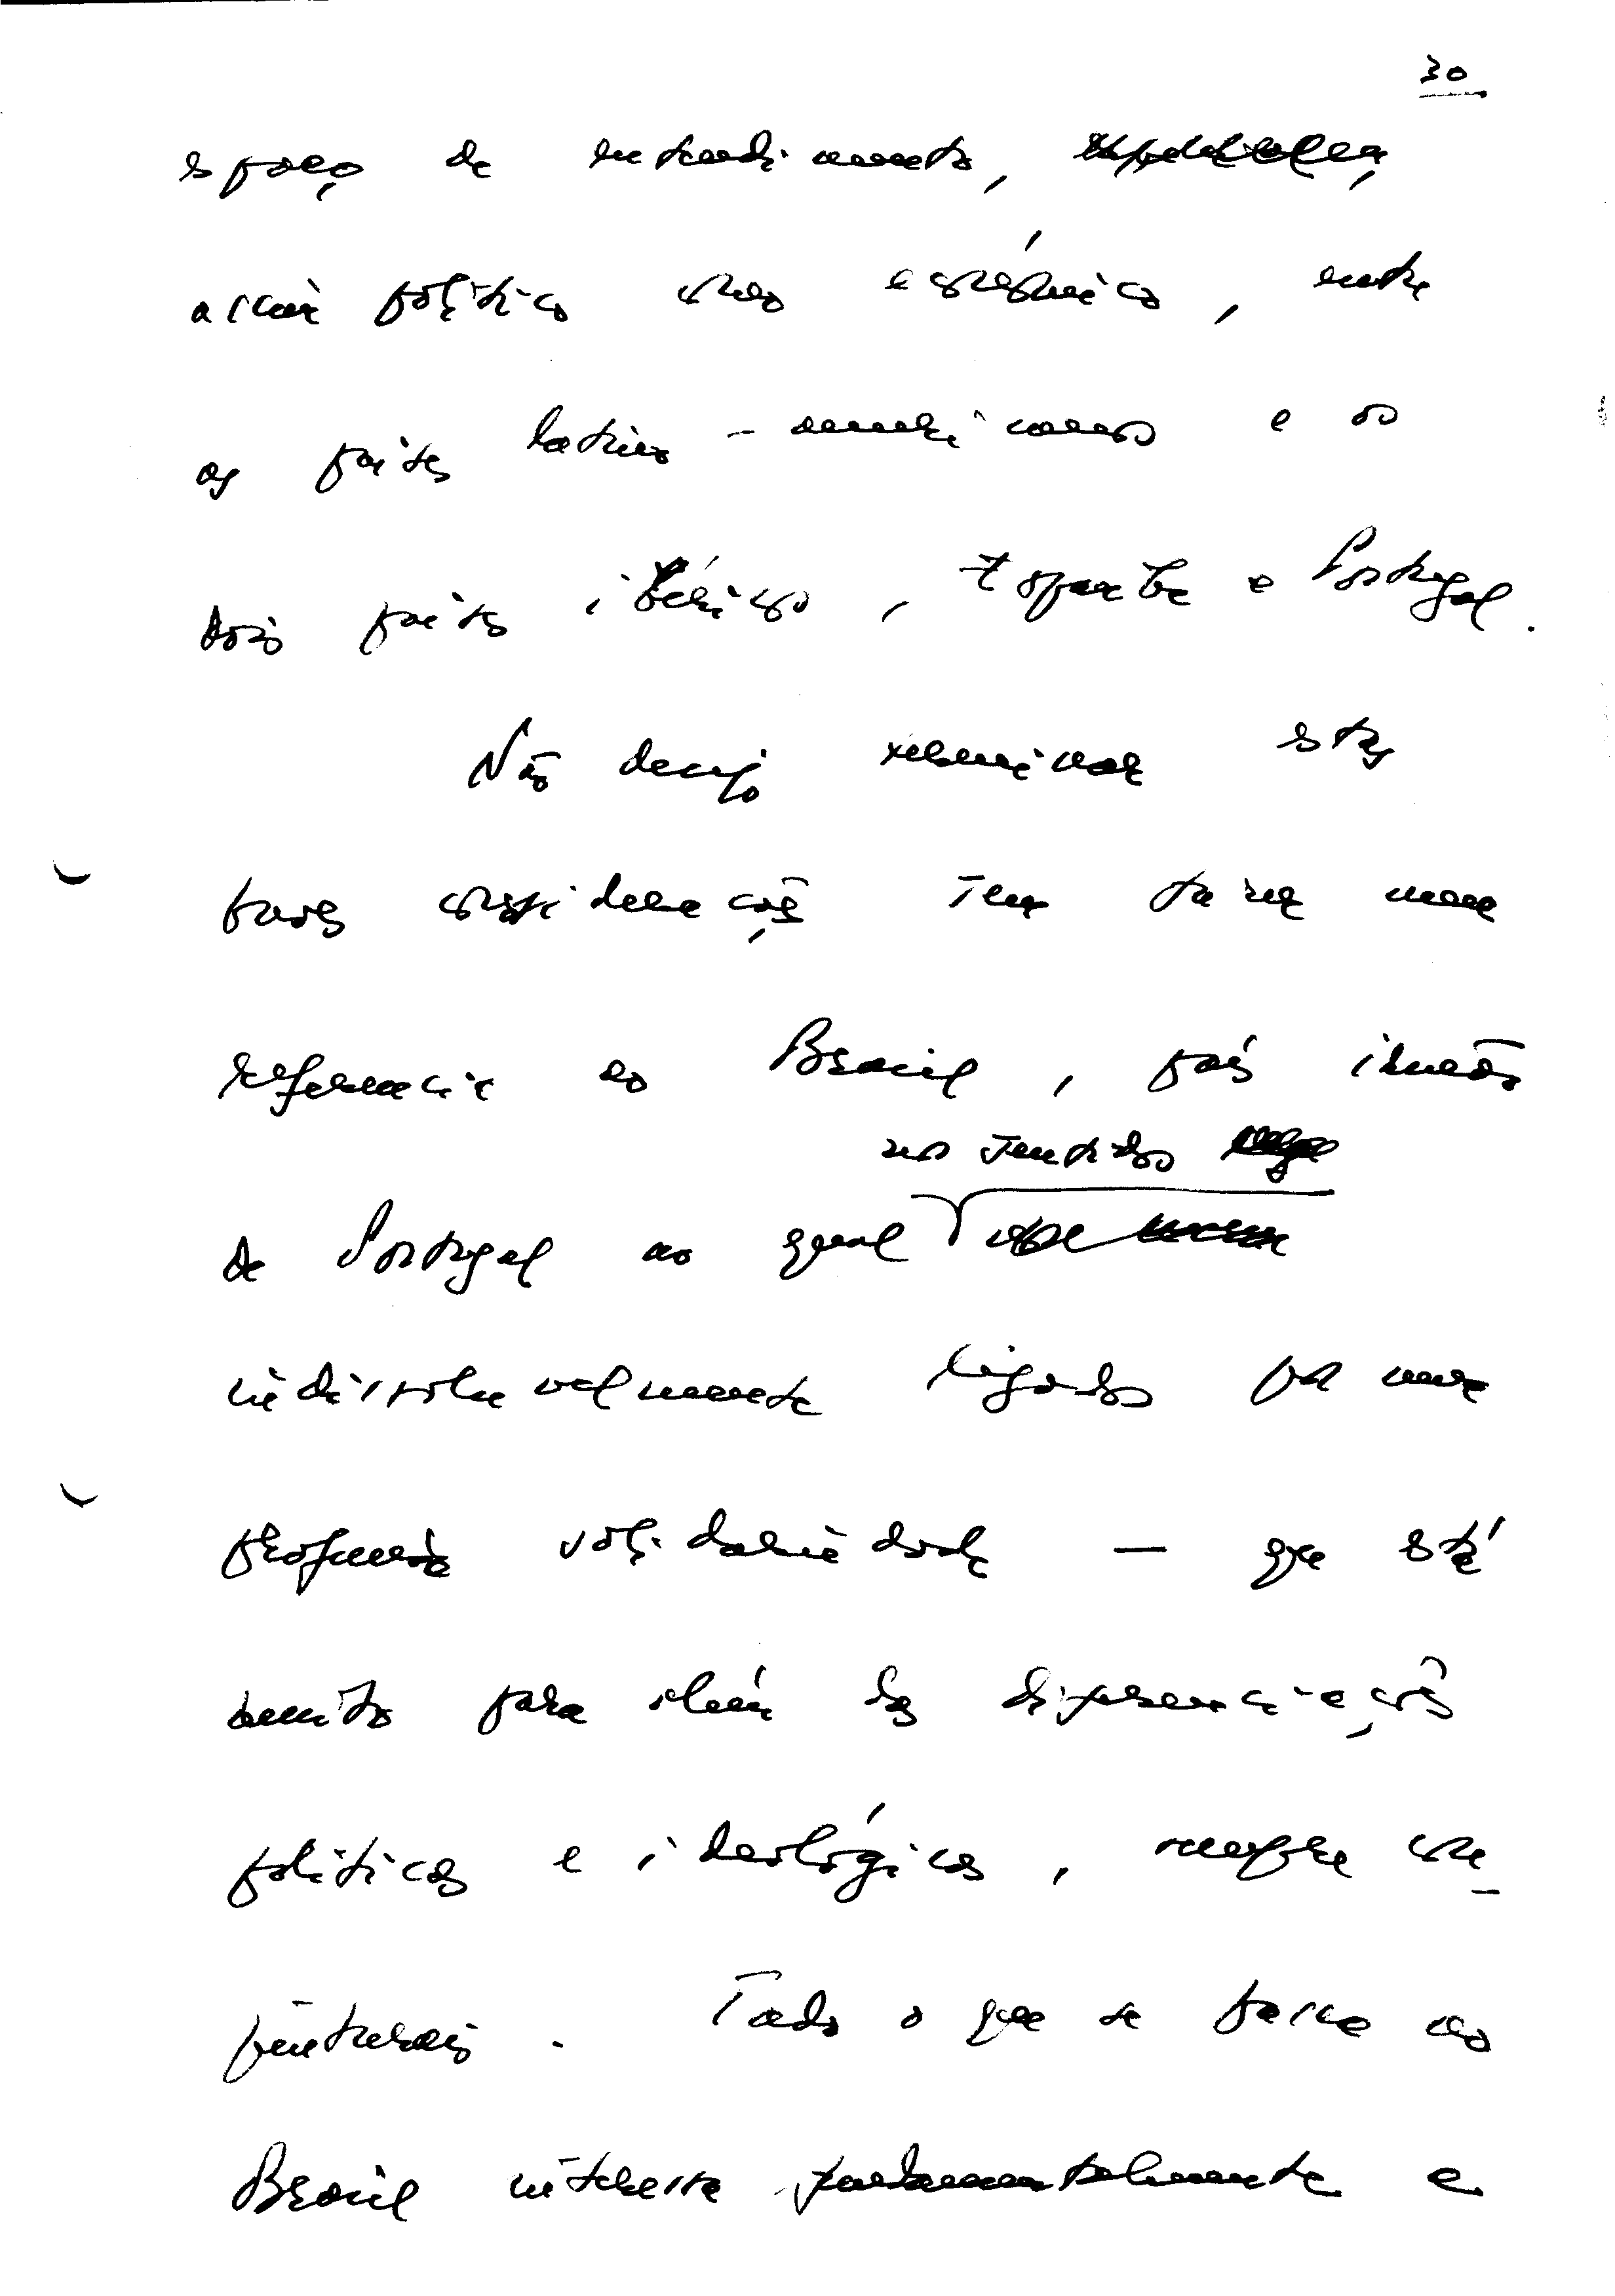 30
espaço de entendimento,
assim político como económico, entre
os países latino-americanos e os
dois países ibéricos, Espanha e Portugal.
Não desejo terminar estas
breves considerações sem fazer uma
referência ao Brasil, país irmão
no sentido
de Portugal ao qual
indissoluvelmente ligados por uma
profunda solidariedade — que está
muito para além das diferenciações
políticas e ideológicas, sempre con-
junturais. Tudo o que se passa no
Brasil interessa fundamentalmente e